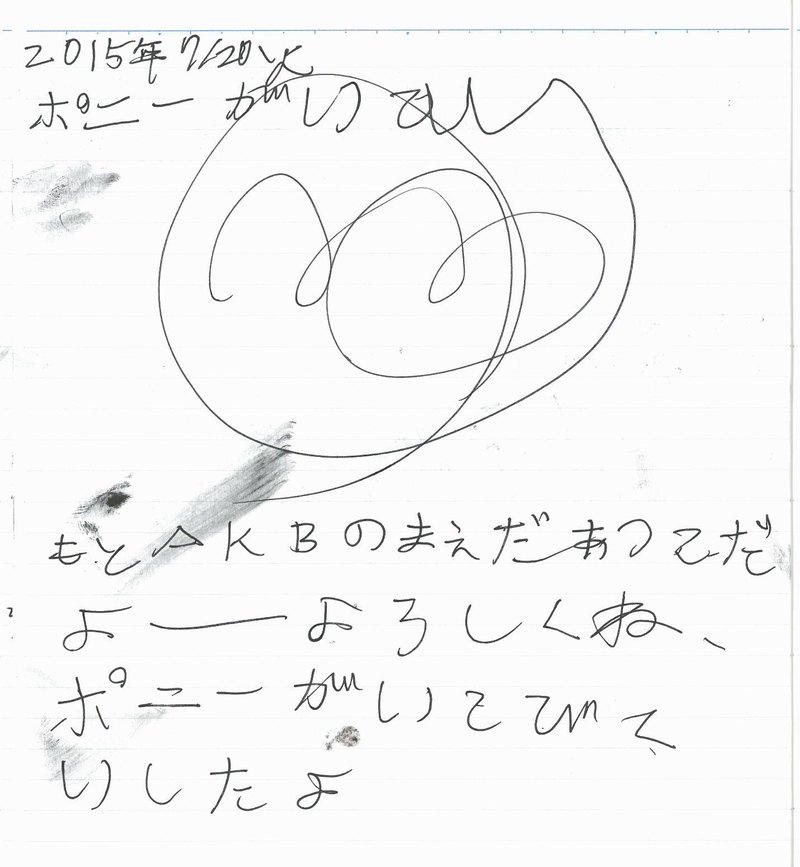 2015年7/20
ポニーがい
もとAKBのまえだあつこだ
よーよろしくね、
ポニーがいこ
いしたよ